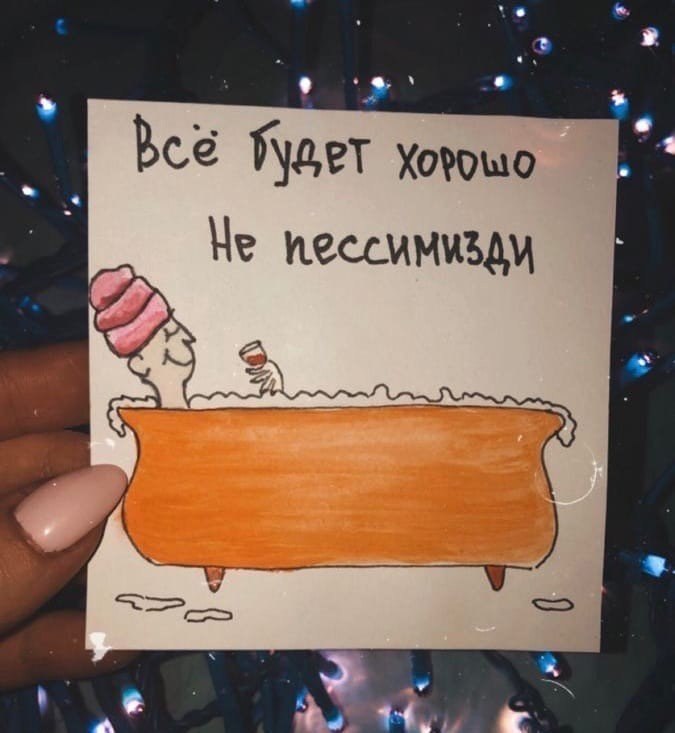 Всё будет хорошо
Не пессимизди